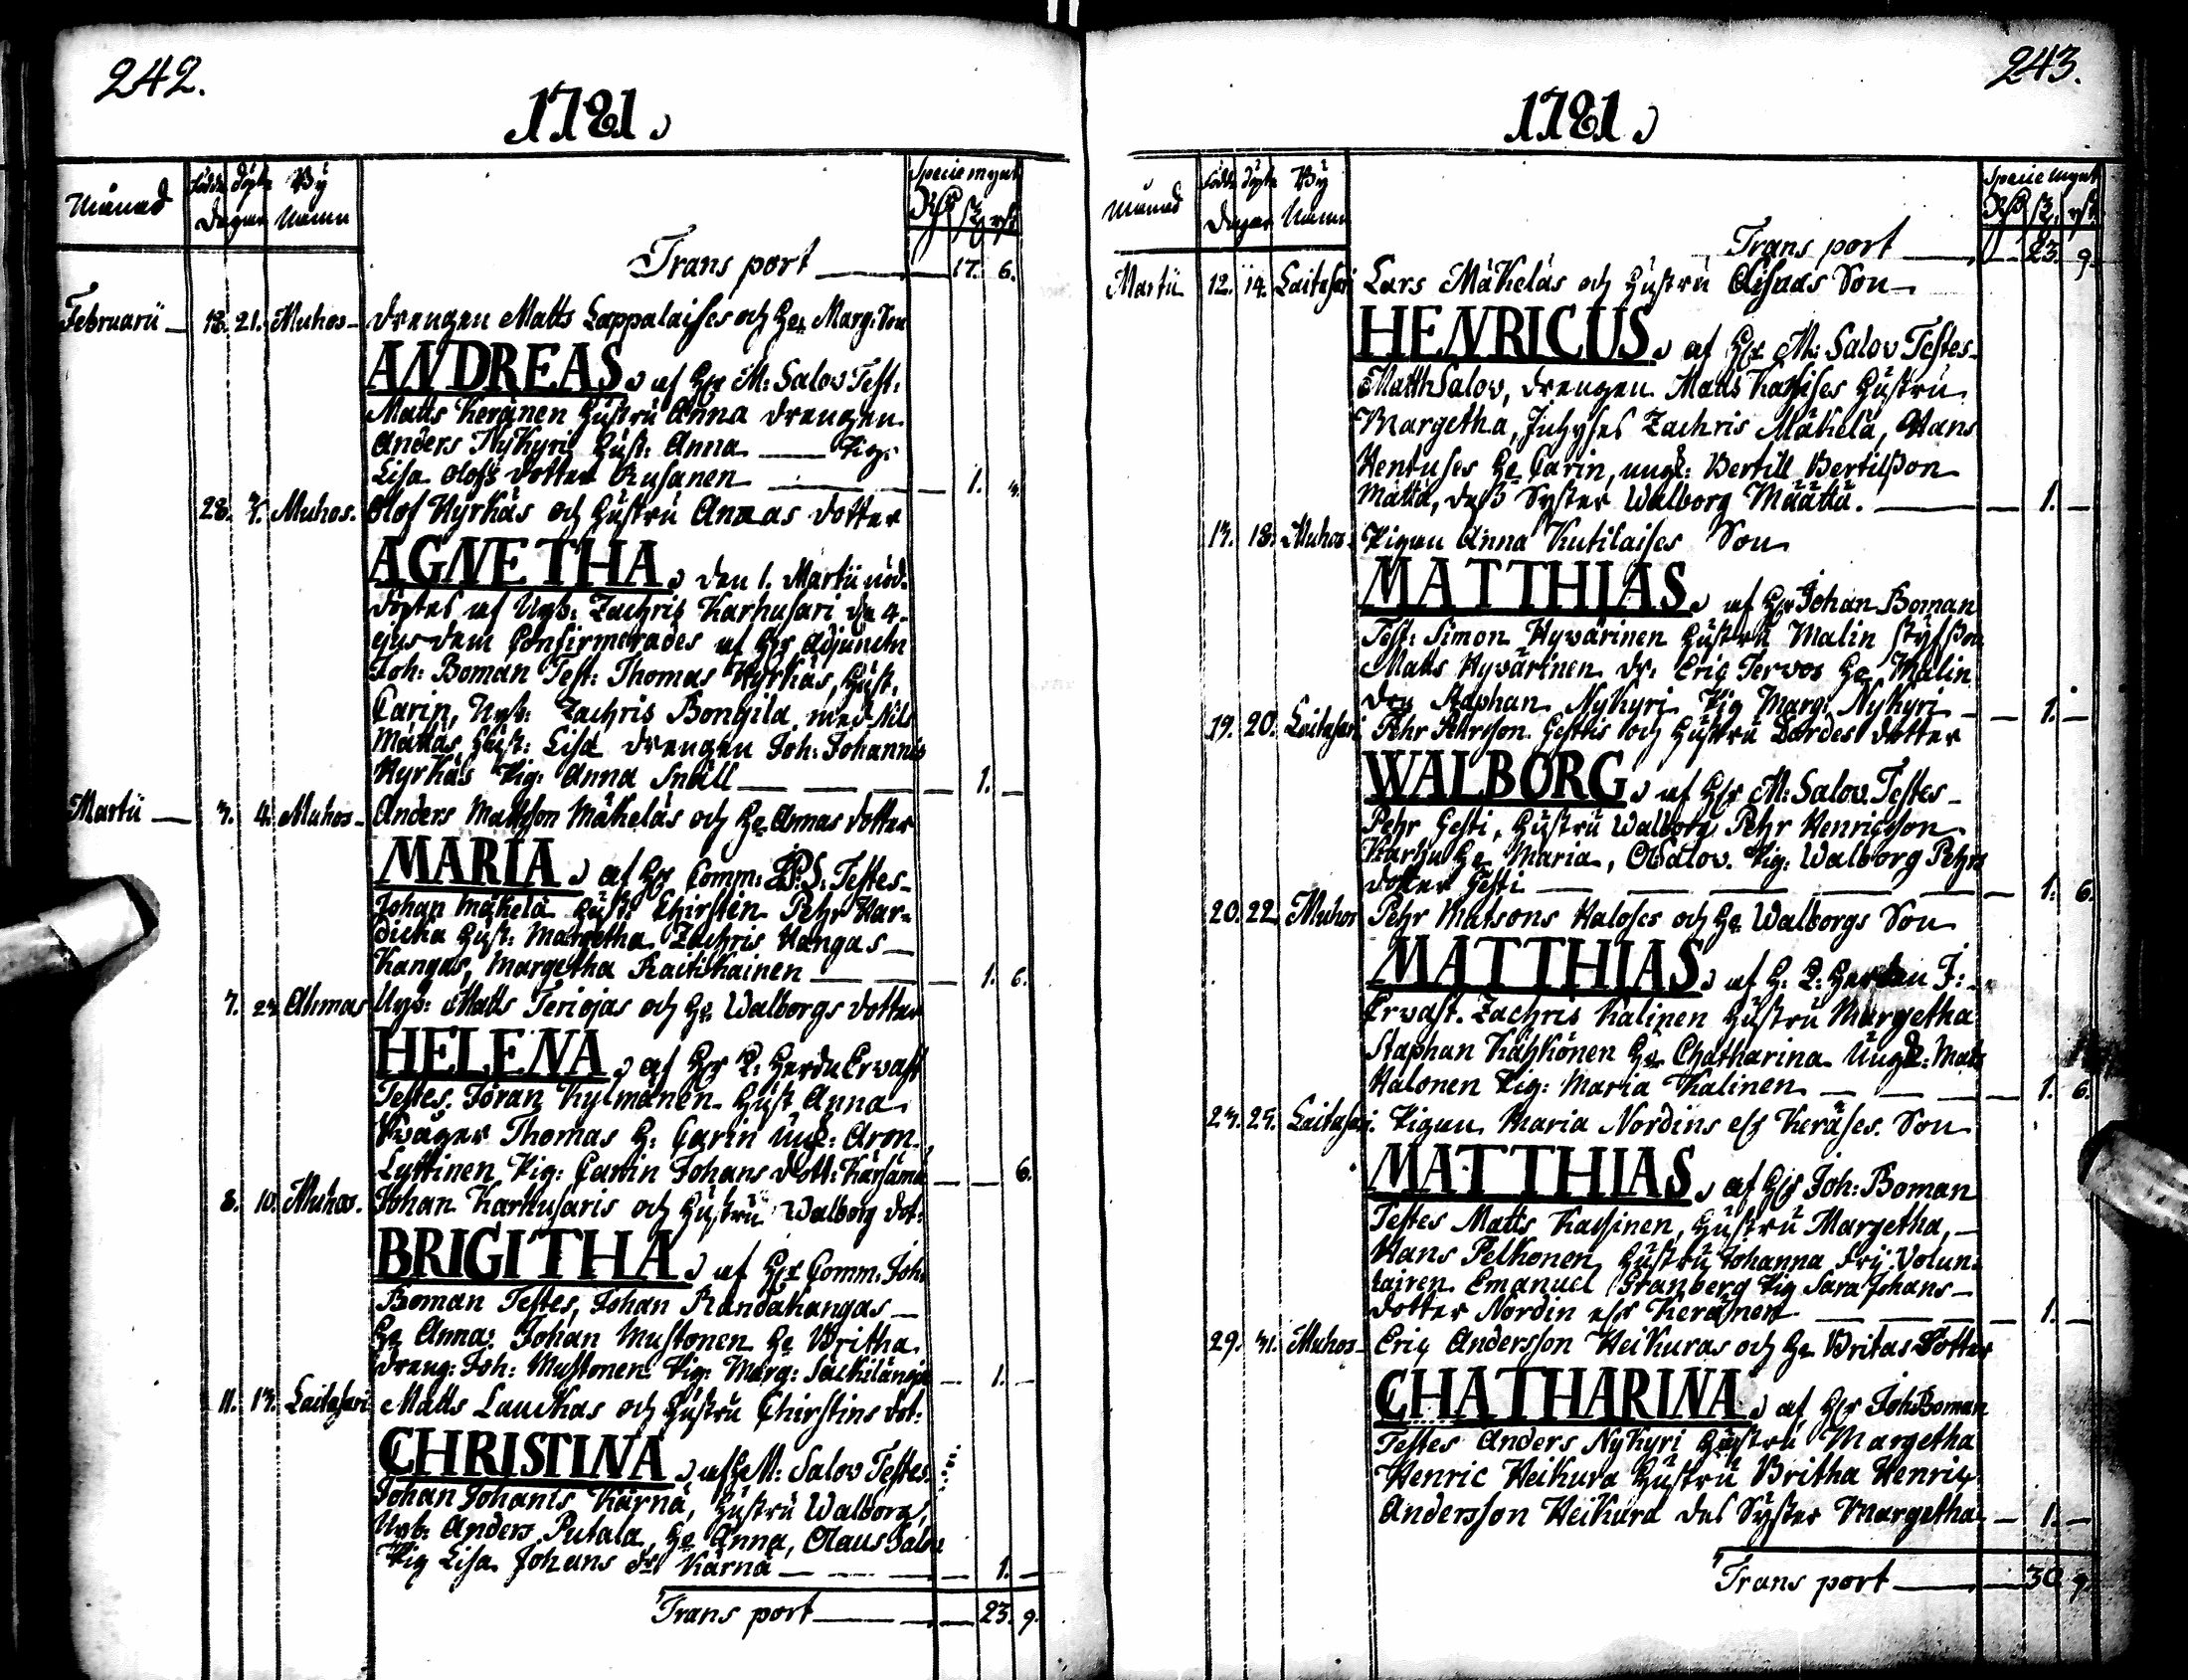 242.
1781.
Månad Födde döpte Dagar By Namn Specie mynt Rd ß rst
Trans port 17. 6.
Februarii 18. 21. Muhos Drengen Matts Lappalaises och H. Marg. Son
ANDREAS, af Hr M: Salov Test:
Matts Keränen Hustru Anna drengen
Anders Nykyri Hust: Anna Pig:
Lisa Olofs dotter Rusanen 1. 3.
28. 4. Muhos. Olof Hyrkäs och Hustru Annas dotter
AGNETHA, den 1. Martii nöd-
döptes af Nyb: Zachris Karhusari den 4.
ejusdem Confirmerades af Hr Adjuncten
Joh: Boman Test: Thomas Hyrkäs, Hust.
Carin, Nyb: Zachris Bongila, med Nils
Mättäs Hust: Lisa drengen Joh: Johannis
Hyrkäs Pig: Anna Snäll 1.
Martii 3. 4. Muhos Anders Mattsson Mäkeläs och H. Annas dotter
MARIA, af Hr Comm: J.P.S: Testes
Johan Mäkelä Hust: Chirstin Pehr Har-
dicka Hust: Margetha Zachris Kangas
Kangas, Margetha Raitikainen 1. 6.
7. 23 Ahmas Nyb: Matts Teriojas och H. Walborgs dotter
HELENA, af Hr P: Herdn Ervast
Testes. Jöran Kylmänen Hust Anna
Thomas H: Carin Ung: Aron
Lyttinen Pig: Carin Johans Dott: Kärsämä 6.
8. 10. Muhos. Johan Karhusaris och Hustru Walborg dot:
BRIGITHA, af Hr Comm: Joh:
Boman Testes, Johan Randakangas
H. Anna: Johan Mustonen H. Britha.
Dreng: Joh: Mustonen Pig: Marg: 1.
11. 13. Laitasari Matts Lauckas och Hustru Chirstins dot:
CHRISTINA, af H M: Salov Testes
Johan Johans Kärnä, Hustru Walborg,
Nyb: Anders Putala, H. Anna, Olaus Salov
Pig Lisa Johans dr Kärnä 1.
Trans port 23. 9.
243.
1781.
Månad Födde döpte Dagar By Namn Specie mynt Rd ß rst
Trans port 23. 9.
Martii 12. 14. Laitasari Lars Mäkeläs och Hustru Lisas Son
HENRICUS, af Hr M: Salov Testes
Matth Salov, drengen Matts Kassises Hustru
Margetha, Zachris Mäkelä, Hans
Hentuses H. Carin, ungk: Bertill Bertilsson
Mätta, dess Syster Walborg Määttä. 1.
13. 18. Muhos. Pigan Anna Kutilaises Son
MATTHIAS, af Hr Johan Boman
Test: Simon Hyvärinen Hustru Malin
Matts Hyvärinen dr. Eric Tervos H. Malin
Dr. Staphan Nykyri Pig Marg: Nykyri 1.
19. 20. Laitasari Pehr Pehrsson Gesttis och Hustru dotter
WALBORG, af Hr M: Salov. Testes
Pehr Gesti, Hustru Walborg Pehr Henricsson
Karhu H. Maria, O Salov. Pig: Walborg Pehrs
dotter Gesti 1. 6.
20. 22. Muhos Pehr Matsons Haloses och H. Walborgs Son
MATTHIAS, af H. P: J:
Ervast. Zachris Kalinen Hustru Margetha
Staphan Kähkönen H. Chatharina Ungk: Mats
Halonen Pig: Maria Kalinen 1. 6.
23. 25. Laitasari. Pigan Maria Nordins els Keräses. Son
MATTHIAS, af Hr Joh: Boman
Testes Matts Kassinen, Hustru Margetha,
Hans Pelkonen Hustru Johanna Volun-
tairen Emanuel Granberg Pig Sara Johans
dotter Nordin els Keränen 1.
29. 31. Muhos Eric Andersson Heikuras och H. Britas Dotter
CHATHARINA, af Hr Joh Boman
Testes Anders Nykyri Hustru Margetha
Henric Heikura Hustru Britha Henric
Andersson Heikura des Syster Margetha 1.
Trans port 30 9.